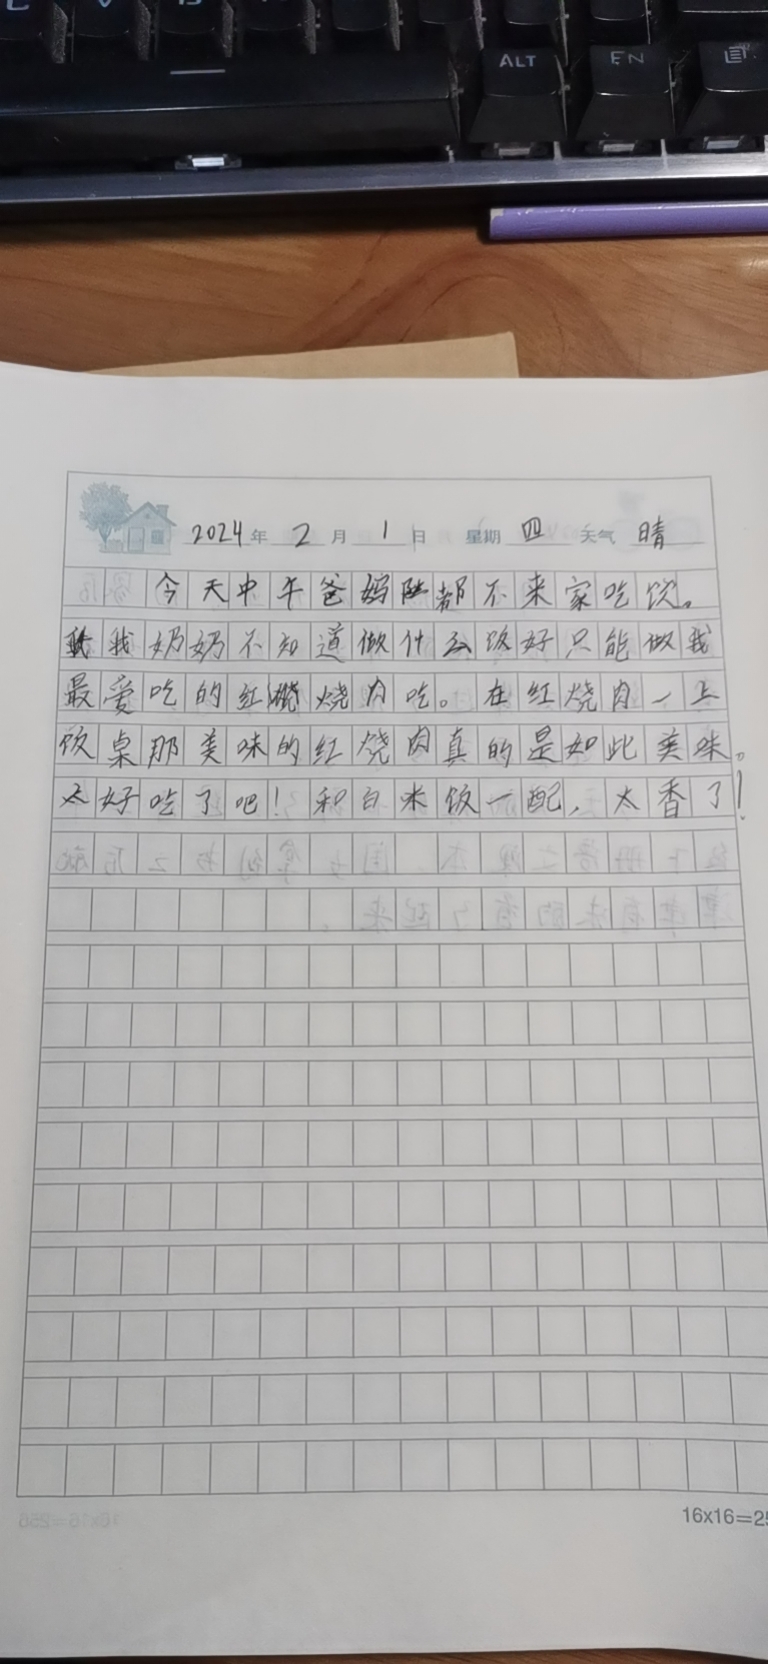 ALT EN
2024年 2月 1日 星期 四 天气 晴
今天中午爸妈都不来家吃饭。
我奶奶不知道做什么饭好只能做我
最爱吃的红烧肉吃。在红烧肉一上
饭桌那美味的红烧肉真的是如此美味。
太好吃了吧！和白米饭一配，太香了！
16x16=25